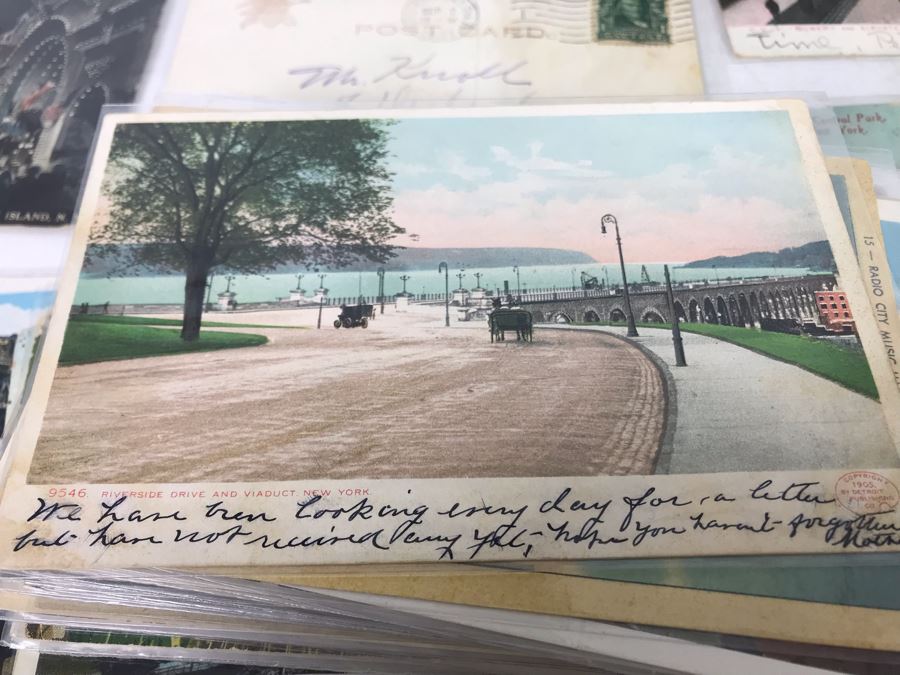 POST CARD.
Mr. Knoll
time,
ISLAND, N.
Central Park,
York.
15 – RADIO CITY MUSIC
9546. RIVERSIDE DRIVE AND VIADUCT. NEW YORK.
COPYRIGHT,
1905,
BY DETROIT
PUBLISHING
CO
We have been looking every day for a letter
but have not received any yet, hope you haven't forgotten
Mother